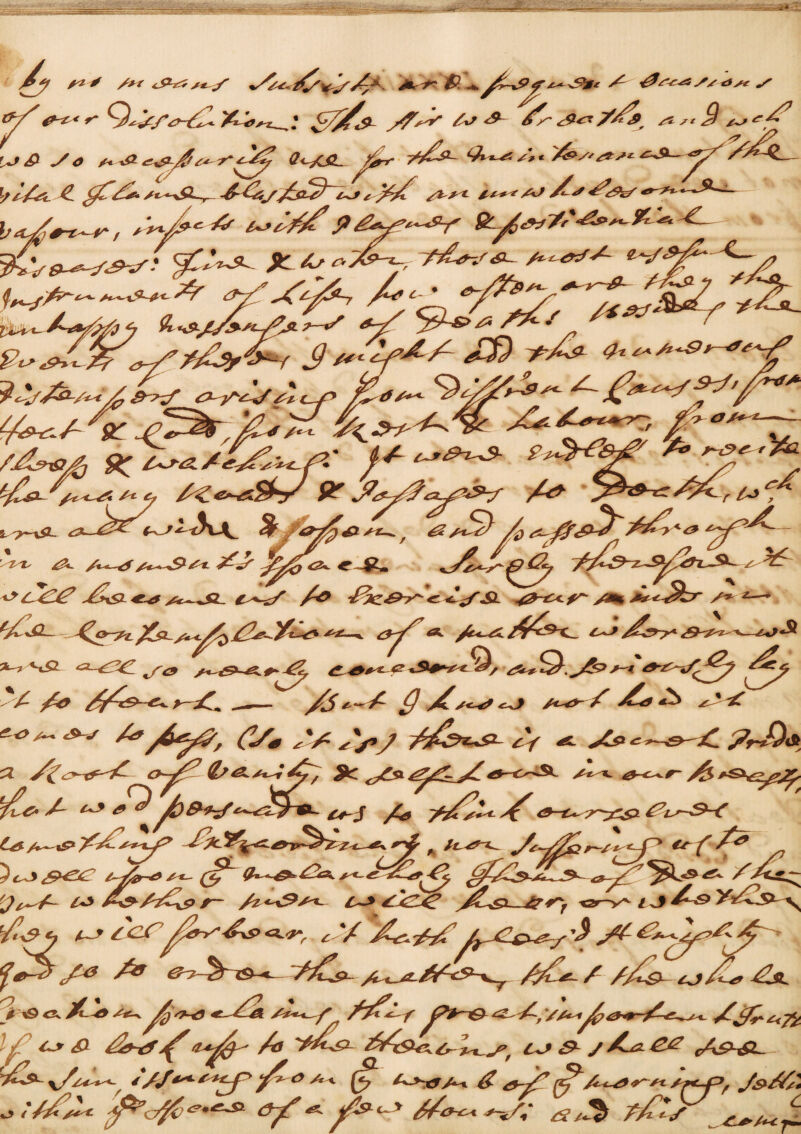 by no means subsist, are frequent Occasions
of our Dissolution: The Air we breathe, and wch
we so necessarily use for the Maintenance of the
vital Flame, blasted with an unwholesome
vapour, infects with Plagues & pestilential
Diseases: Fire & water, those most useful
Instruments of Life, how often are they the
unhappy Messengers of Death! Besides the
Events of these, I might add the numerous
Distempers arising from diff'rent Causes, from
Heat & Cold, from Rest & Labour, from
sleep & watching: It were Endless to recite
the many Roads & Passages to Death, wch
are all wide & open, and passed through
in a moment's space. Surely therefore it
will become us to Exercise our minds in
the Contemplation of a matter wherein we
are all so nearly concern'd, and seriously lay
it to Heart. — But I know not how it
comes to pass, (so it is) there is a secret Pride,
a Root of Vanity, & self-Love in our Breasts,
that wod persuade us to think ourselves
something Extraordinary, nor suffering us to
dwell upon ye melancholy Theme of Death
But whether men will hear, or whether
they will forbear, it hath pleas'd Almighty
God so to order the matter, that the whole
Creation proclaims this great, important Truth
If we look up to the Heav'ns, we shall see
the Sun, issuing from ye womb of ye morning, setting
within ye space of a few Hours; and this